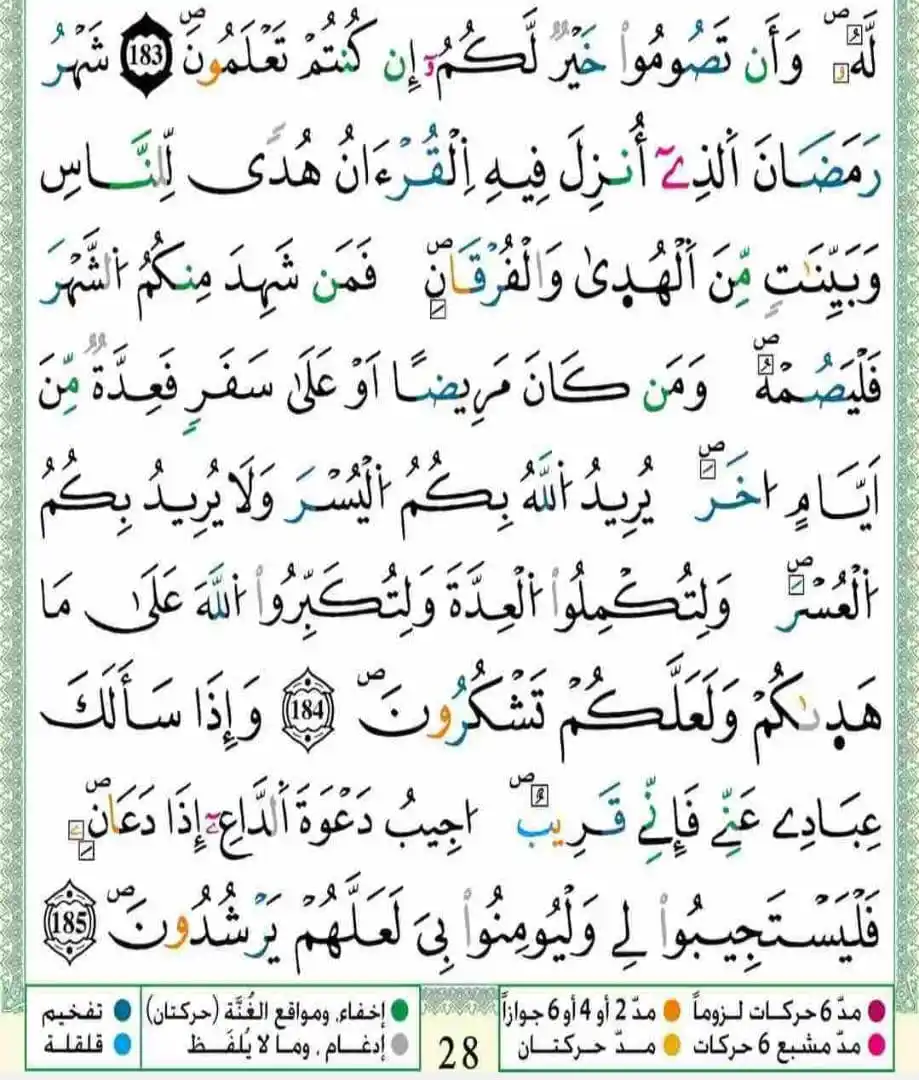 لَّهُۥ وَأَن تَصُومُوا۟ خَيْرٌ لَّكُمُۥٓ إِن كُنتُمْ تَعْلَمُونَ 183 شَهْرُ
رَمَضَانَ اَلذِےٓ أُنزِلَ فِيهِ اِلْقُرْءَانُ هُدىً لِّلنَّاسِ
وَبَيِّنَٰتٍ مِّنَ اَلْهُدِىٰ وَالْفُرْقَانِ فَمَن شَهِدَ مِنكُمُ اُلشَّهْرَ
فَلْيَصُمْهُ وَمَن كَانَ مَرِيضاً اَوْ عَلَىٰ سَفَرٍ فَعِدَّةٌ مِّنَ
اَيَّامٍ اخَرَ يُرِيدُ اُللَّهُ بِكُمُ اُلْيُسْرَ وَلَا يُرِيدُ بِكُمُ
اُلْعُسْرَ وَلِتُكْمِلُوا۟ اُلْعِدَّةَ وَلِتُكَبِّرُوا۟ اُللَّهَ عَلَىٰ مَا
هَدِىٰكُمْ وَلَعَلَّكُمْ تَشْكُرُونَ 184 وَإِذَا سَأَلَكَ
عِبَادِے عَنِّے فَإِنِّے قَرِيبٌ اجِيبُ دَعْوَةَ اَلدَّاعِۦٓ إِذَا دَعَانِۦ
فَلْيَسْتَجِيبُوا۟ لِے وَلْيُومِنُوا۟ بِىَ لَعَلَّهُمْ يَرْشُدُونَ 185
مدّ 6 حركات لزوماً مدّ 2 أو 4 أو 6 جوازاً إخفاء، ومواقع الغُنَّة (حركتان) تفخيم
مدّ مشبع 6 حركات مدّ حركتان 28 إدغام، وما لا يُلفَظ قلقلة